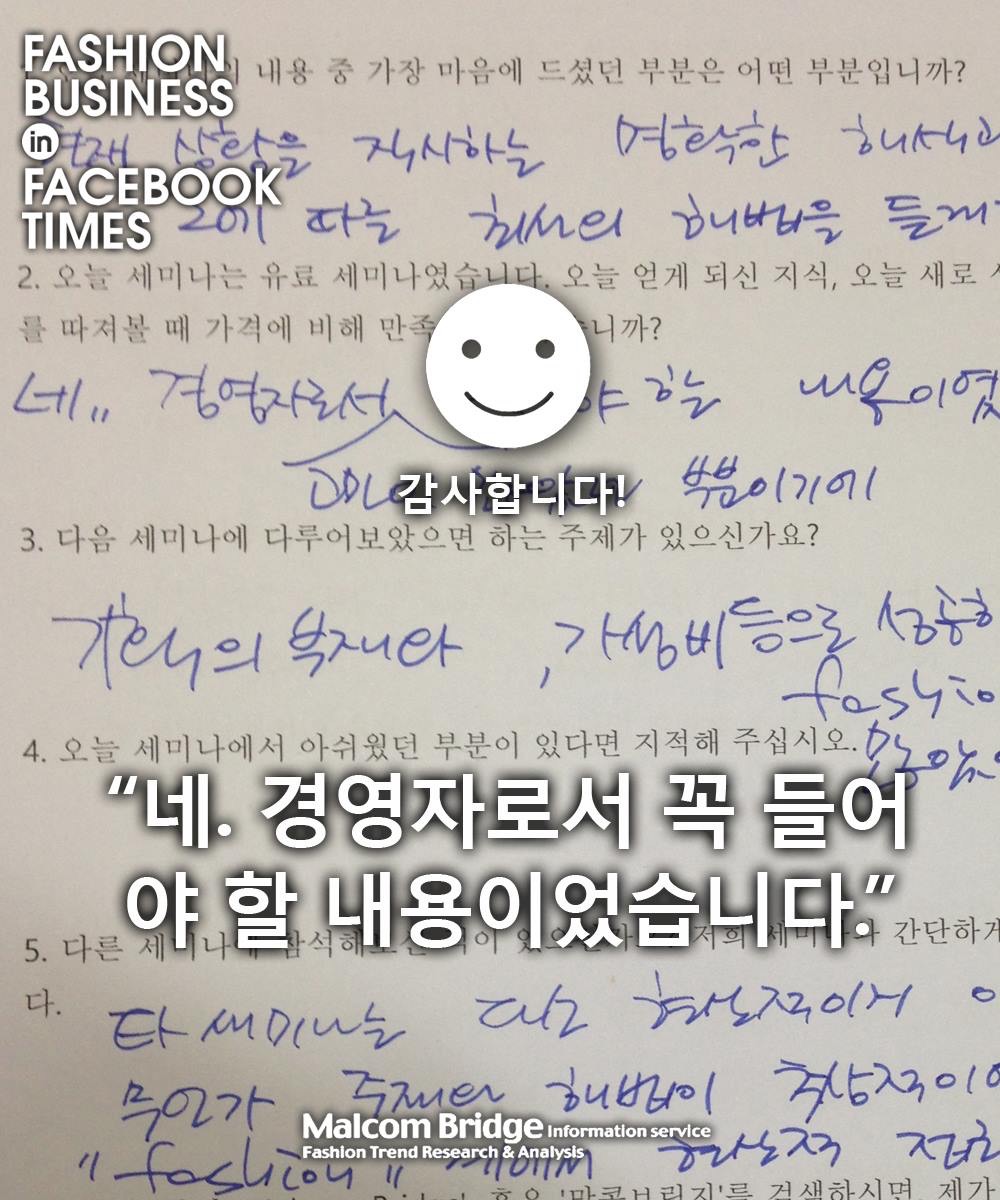 FASHION
BUSINESS
in
FACEBOOK
TIMES
내용 중 가장 마음에 드셨던 부분은 어떤 부분입니까?
현재 상황을 직시하는 명확한 해석과
그에 따른 최선의 해법을 듣게
2. 오늘 세미나는 유료 세미나였습니다. 오늘 얻게 되신 지식, 오늘 새로
를 따져볼 때 가격에 비해 만족 니까?
네.. 경영자로서 야 할 내용이었
부분이기에
감사합니다!
3. 다음 세미나에 다루어보았으면 하는 주제가 있으신가요?
개혁의 부재와 , 가성비 등으로 성공한
fashio
4. 오늘 세미나에서 아쉬웠던 부분이 있다면 지적해 주십시오.
“네. 경영자로서 꼭 들어
야 할 내용이었습니다.”
5. 다른 간단하게
다.
타 세미나는 다소 현상적이거
무언가 주제와 해법이 추상적이
Malcom Bridge Information service
Fashion Trend Research & Analysis
"fashion" 현실적
혹은 '말콤브릿지'를 검색하시면, 제가